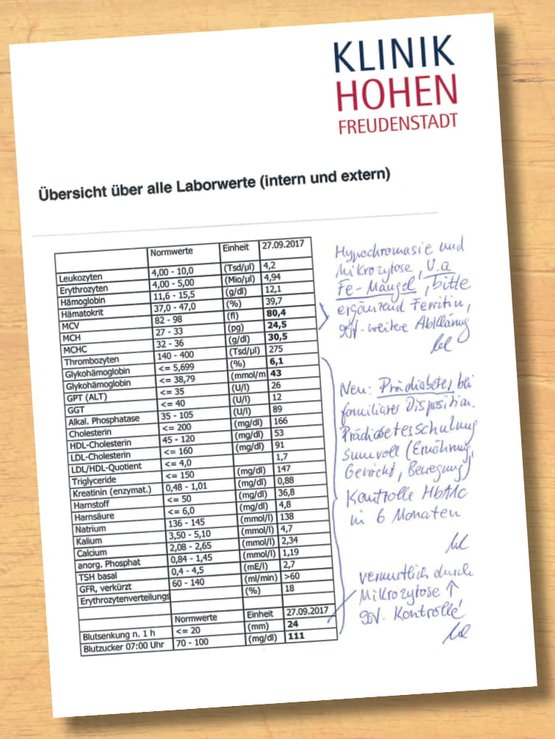 KLINIK
HOHEN
FREUDENSTADT
Übersicht über alle Laborwerte (intern und extern)
Normwerte Einheit 27.09.2017
Leukozyten 4,00 - 10,0 (Tsd/µl) 4,2
Erythrozyten 4,00 - 5,00 (Mio/µl) 4,94
Hämoglobin 11,6 - 15,5 (g/dl) 12,1
Hämatokrit 37,0 - 47,0 (%) 39,7
MCV 82 - 98 (fl) 80,4
MCH 27 - 33 (pg) 24,5
MCHC 32 - 36 (g/dl) 30,5
Thrombozyten 140 - 400 (Tsd/µl) 275
Glykohämoglobin <= 5,699 (%) 6,1
Glykohämoglobin <= 38,79 (mmol/m 43
GPT (ALT) <= 35 (U/l) 26
GGT <= 40 (U/l) 12
Alkal. Phosphatase 35 - 105 (U/l) 89
Cholesterin <= 200 (mg/dl) 166
HDL-Cholesterin 45 - 120 (mg/dl) 53
LDL-Cholesterin <= 160 (mg/dl) 91
LDL/HDL-Quotient <= 4,0 1,7
Triglyceride <= 150 (mg/dl) 147
Kreatinin (enzymat.) 0,48 - 1,01 (mg/dl) 0,88
Harnstoff <= 50 (mg/dl) 36,8
Harnsäure <= 6,0 (mg/dl) 4,8
Natrium 136 - 145 (mmol/l) 138
Kalium 3,50 - 5,10 (mmol/l) 4,7
Calcium 2,08 - 2,65 (mmol/l) 2,34
anorg. Phosphat 0,84 - 1,45 (mmol/l) 1,19
TSH basal 0,4 - 4,5 (mE/l) 2,7
GFR, verkürzt 60 - 140 (ml/min) >60
Erythrozytenverteilungs (%) 18
Normwerte Einheit 27.09.2017
Blutsenkung n. 1 h <= 20 (mm) 24
Blutzucker 07:00 Uhr 70 - 100 (mg/dl) 111
Hypochromasie und
Mikrozytose, V.a
Fe-Mangel, bitte
ergänzend Ferritin,
ggf. weitere Abklärung
Neu: Prädiabetes, bei
familiärer Disposition.
Prädiabetesschulung
sinnvoll (Ernährung,
Gewicht, Bewegung)
Kontrolle HbA1c
in 6 Monaten
vermutlich durch
Mikrozytose ↑
ggf. Kontrolle